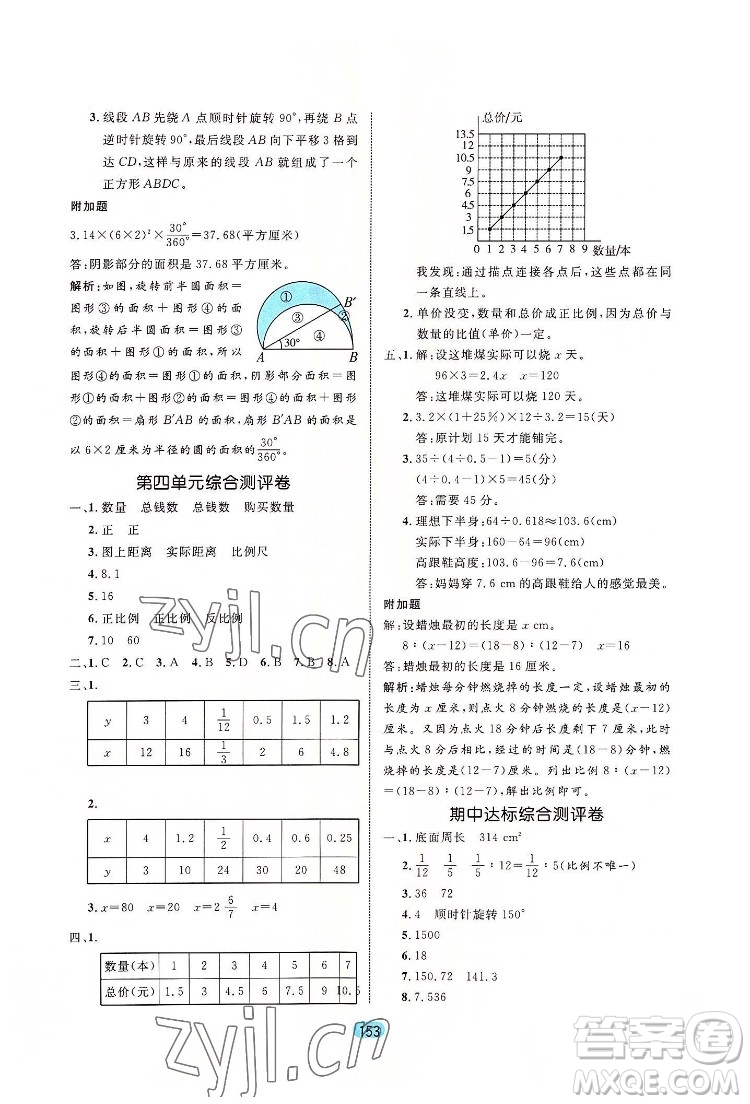 3. 线段 AB 先绕 A 点顺时针旋转 90°,再绕 B 点
逆时针旋转 90°,最后线段 AB 向下平移 3 格到
达 CD,这样与原来的线段 AB 就组成了一个
正方形 ABDC。
附加题
3.14×(6×2)²×30°/360°=37.68(平方厘米)
答:阴影部分的面积是 37.68 平方厘米。
解析:如图,旋转前半圆面积=
图形③的面积+图形④的面积,
旋转后半圆面积=图形③
的面积+图形①的面积+图
形④的面积+图形②的面
积-图形②的面积,所以
图形③的面积+图形④的面积=图形③的面积+图形①
的面积+图形④的面积+图形②的面积-图形②的面积,阴影部分的面积=图形①的面积+图形
②的面积=扇形 B′AB 的面积,扇形 B′AB 的面积
是以 6×2 厘米为半径的圆的面积的30°/360°。
①
②
③
④
A
B
B′
30°
第四单元综合测评卷
一、1. 数量 总钱数 总钱数 购买数量
2. 正 正
3. 图上距离 实际距离 比例尺
4. 8.1
5. 16
6. 正比例 正比例 反比例
7. 10 60
二、1. C 2. C 3. A 4. B 5. D 6. B 7. B 8. A
三、1.
y 3 4 1/12 0.5 1.5 1.2
x 12 16 1/3 2 6 4.8
2.
x 4 1.2 1/2 0.6 0.8 0.25
y 3 10 24 20 15 48
3. x=80 x=20 x=2 6/7 x=4
四、1.
数量(本) 1 2 3 4 5 6 7
总价(元) 1.5 3 4.5 6 7.5 9 10.5
总价/元
13.5
12
10.5
9
7.5
6
4.5
3
1.5
0 1 2 3 4 5 6 7 8 9 数量/本
我发现:通过描点连接各点后,这些点都在同
一条直线上。
2. 单价没变,数量和总价成正比例,因为总价与
数量的比值(单价)一定。
五、1. 解:设这堆煤实际可以烧 x 天。
96×3=2.4x x=120
答:这堆煤实际可以烧 120 天。
2. 3.2×(1+25%)×12÷3.2=15(天)
答:原计划 15 天才能铺完。
3. 35÷(4.5-1)÷(4-2)=5(分)
(4.5-1)÷0.5+(4-1)×5+… 
答:需要 45 分。
4. 理想下半身:64÷0.618≈103.6(cm)
实际下半身:160-64=96(cm)
高跟鞋高度:103.6-96=7.6(cm)
答:妈妈穿 7.6 cm 的高跟鞋给人的感觉最美。
附加题
解:设蜡烛最初的长度是 x cm。
8∶(x-12)=(18-8)∶(12-7) x=16
答:蜡烛最初的长度是 16 厘米。
解析:蜡烛每分钟燃烧掉的长度一定,设蜡烛最初的长度为 x
厘米。又因为点火 8 分钟燃烧掉的长度是(x-12)
厘米。从点火 8 分到点火 18 分,经过的时间是(18-8)分钟,燃
烧掉的长度是(12-7)厘米。列出比例 8∶(x-12)
=(18-8)∶(12-7),解出比例即可。
期中达标综合测评卷
一、1. 底面周长 314 cm²
2. 1/12 1/12∶12=1/12∶12(比例不唯一)
3. 36 72
4. 4 顺时针旋转 150°
5. 1500
6. 18
7. 150.72 141.3
8. 7.536
153
zyjl.cn
zyjl.cn
答案圈
MXQE.COM